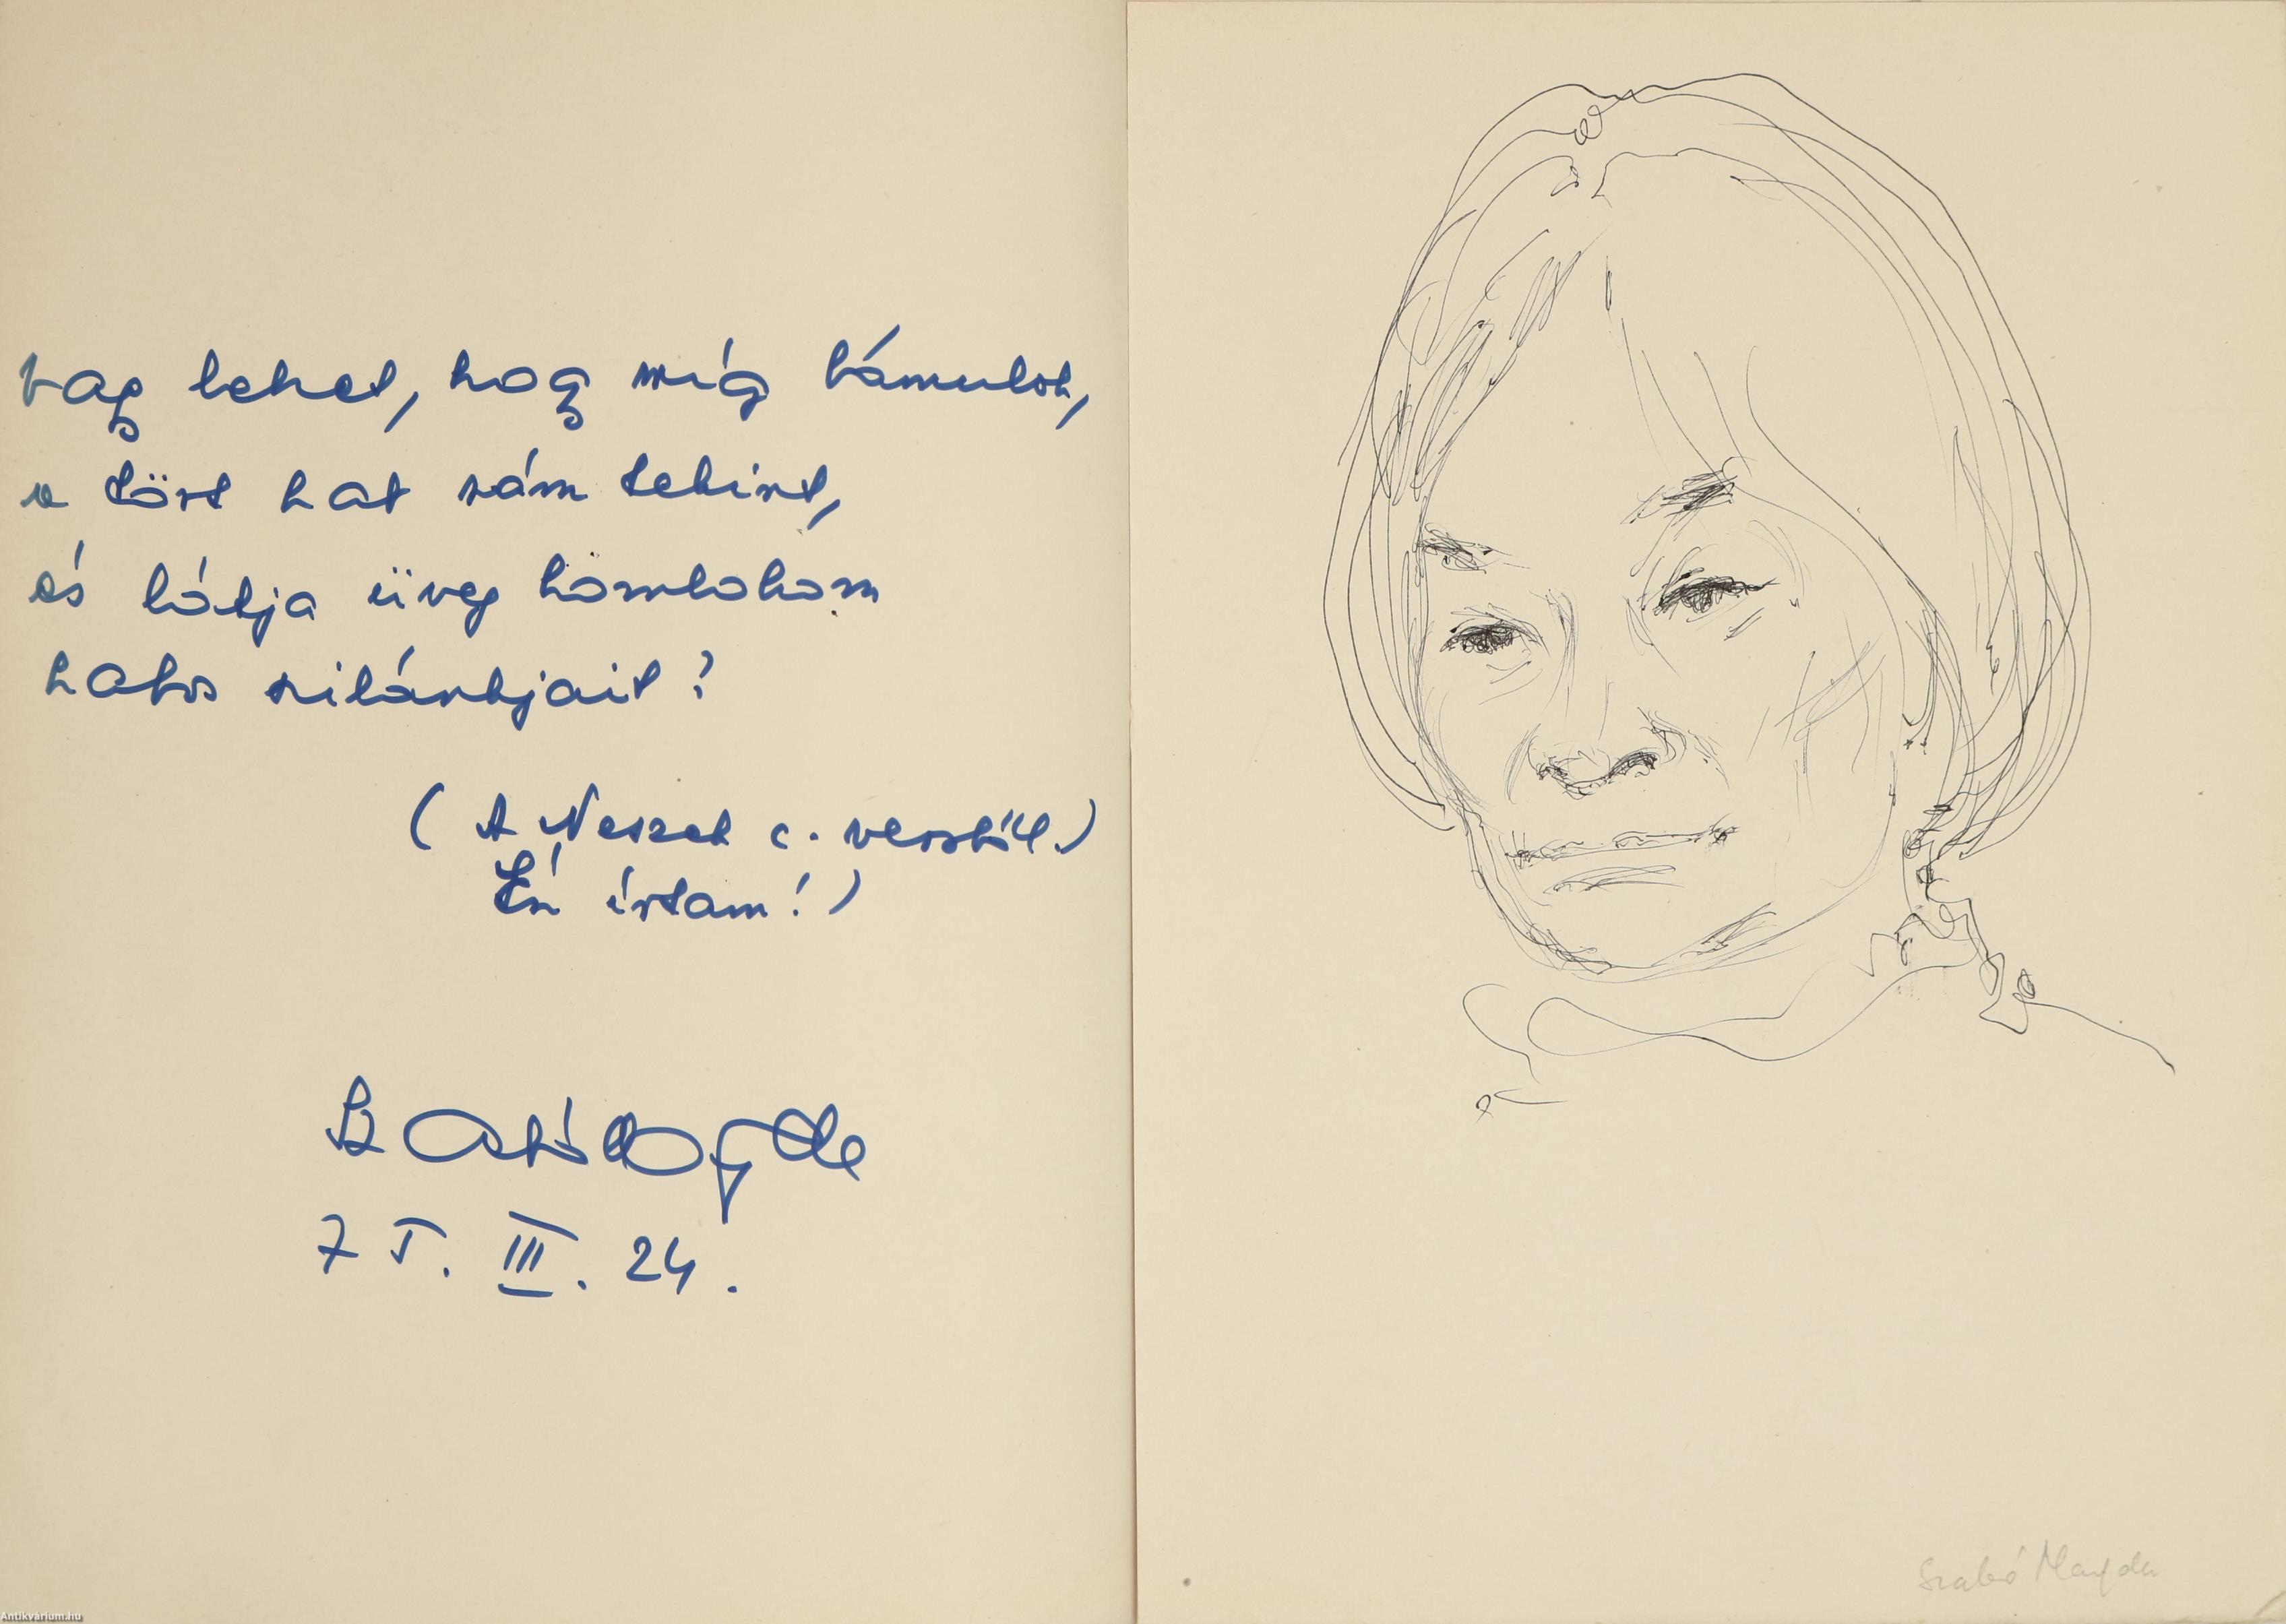 vagy lehet, hogy míg bámulok,
a tört hat rám tekint,
és látja üveg homlokom
hatos szilánkjait?
(A Neszek c. versből.)
Én írtam!)
Szabó Magda
7 I. III. 24.
Szabó Magda
Antikvárium.hu